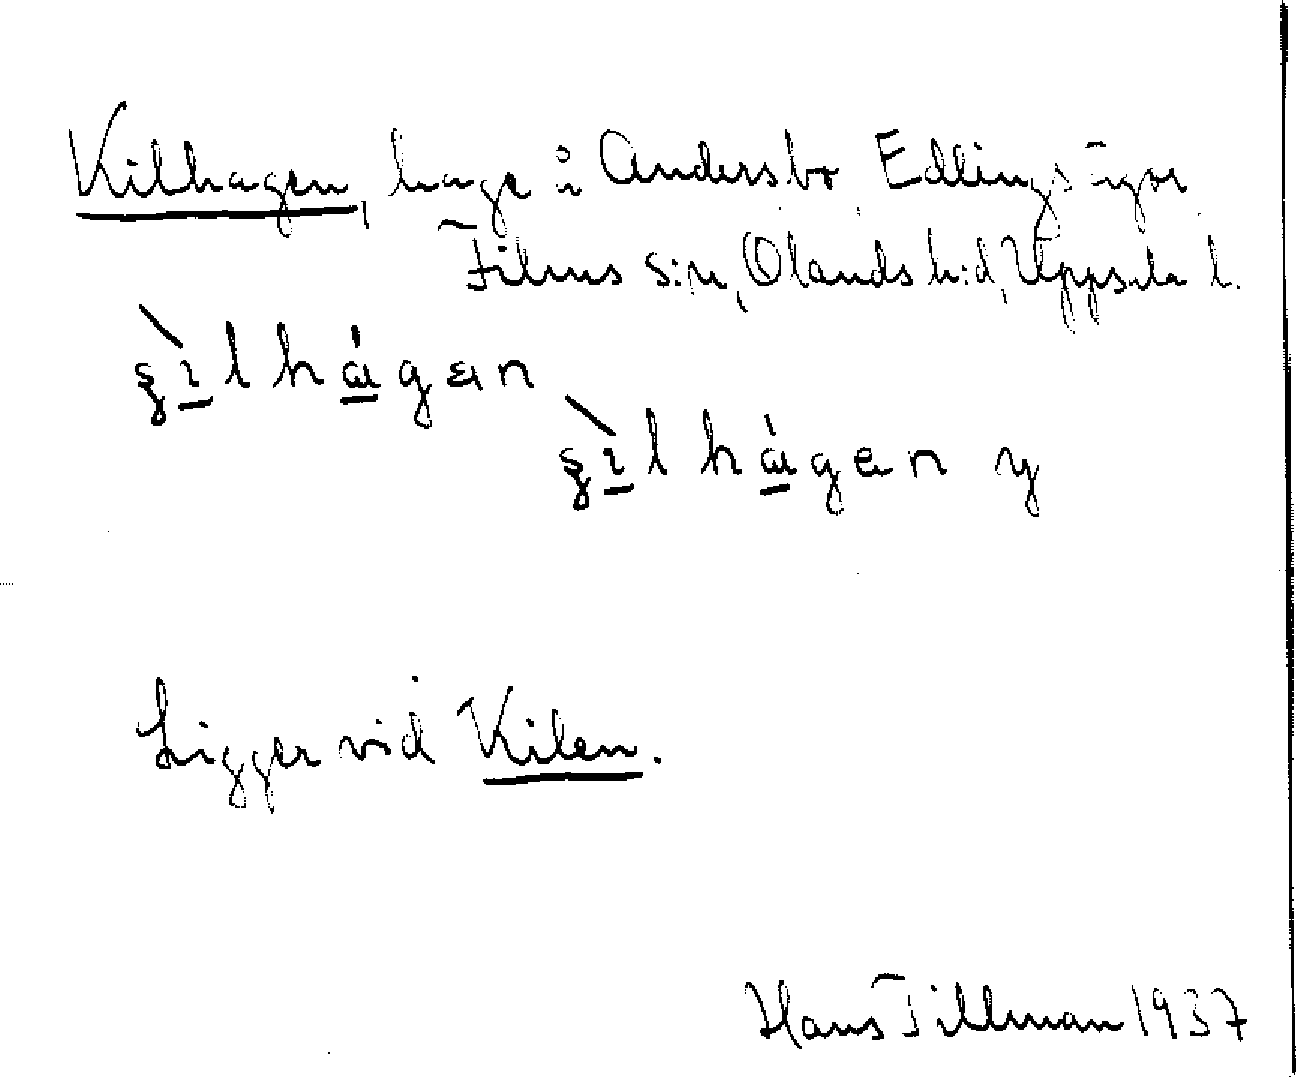 Kilhagen, hage å Andersbo Edlings ägor
Films s:n, Olands h:d, Uppsala l.
Ligger vid Kilen.
Hans Tillman 1937